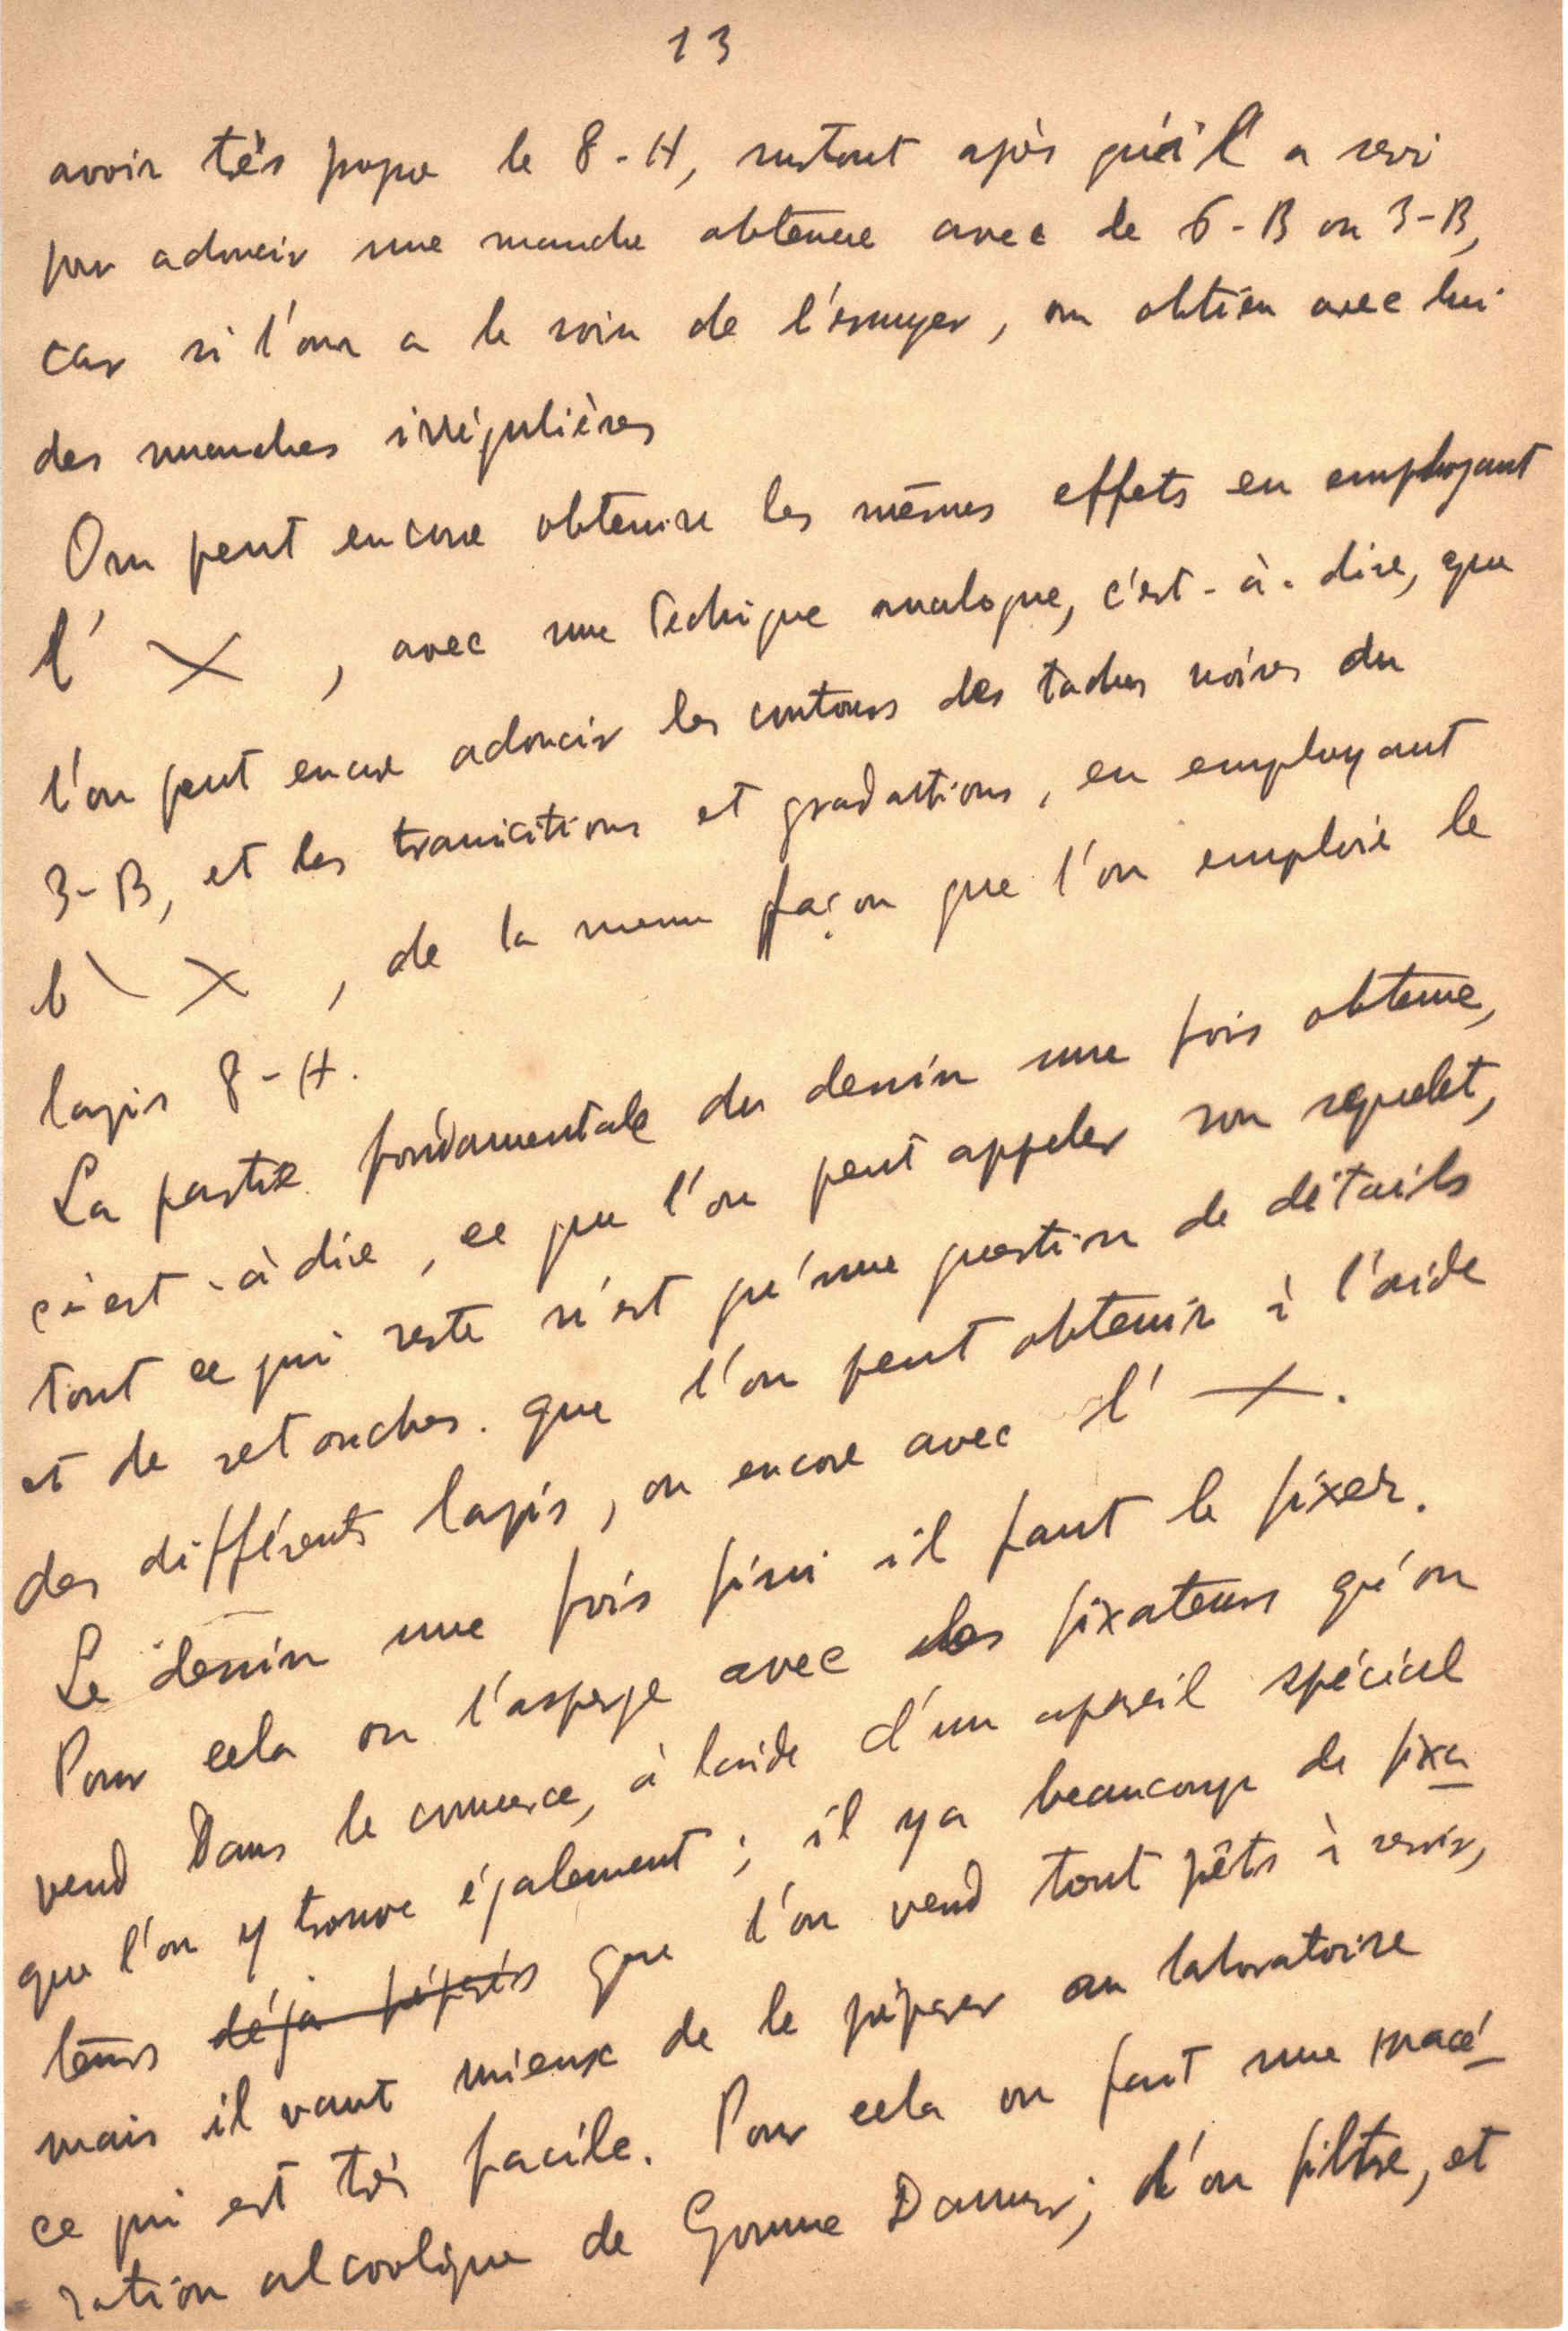 13
avoir très propre le 8-H, surtout après qu'il a servi
pour adoucir une manche obtenue avec de 6-B ou 3-B,
car si l'on a le soin de l'essuyer, on obtien avec lui
des manches irrégulières
On peut encore obtenire les mêmes effets en employant
l' X , avec une techique analogue, c'est-à-dire, que
l'on peut encore adoucir les contours des taches noires du
3-B, et les tranicitions et gradattions, en employant
l' X , de la meme façon que l'on emploie le
lapis 8-H.
La partie fondamentale du dessin une fois obtenue,
c'est-à dire, ce que l'on peut appeler son squelet,
tout ce qui reste n'est qu'une question de détails
et de retouches. que l'on peut obtenir à l'aide
des différents lapis, ou encore avec l' X.
Le dessin une fois fini il faut le fixer.
Pour cela on l'asperge avec des fixateurs qu'on
vend Dans le commerce, à laide d'un apareil spécial
que l'on y trouve également; il ya beaucoup de fixa
teurs déja préparés que l'on vend tout prêts à servir,
mais il vaut mieux de le préparer au laboratoire
ce qui est très facile. Pour cela on fait une macé
ration alcoolique de Gomme Damar; d'on filtre, et